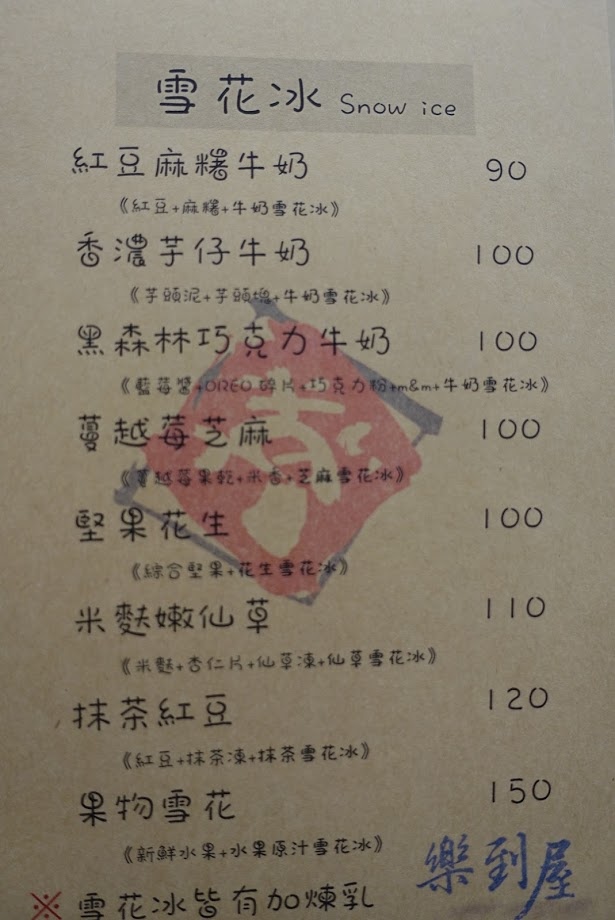 雪花冰 Snow ice
紅豆麻糬牛奶 90
《紅豆+麻糬+牛奶雪花冰》
香濃芋仔牛奶 100
《芋頭泥+芋頭塊+牛奶雪花冰》
黑森林巧克力牛奶 100
《藍莓醬+OREO碎片+巧克力粉+m&m+牛奶雪花冰》
蔓越莓芝麻 100
《蔓越莓果乾+米香+芝麻雪花冰》
堅果花生 100
《綜合堅果+花生雪花冰》
米麩嫩仙草 110
《米麩+杏仁片+仙草凍+仙草雪花冰》
抹茶紅豆 120
《紅豆+抹茶凍+抹茶雪花冰》
果物雪花 150
《新鮮水果+水果原汁雪花冰》
※ 雪花冰皆有加煉乳
樂到屋
春